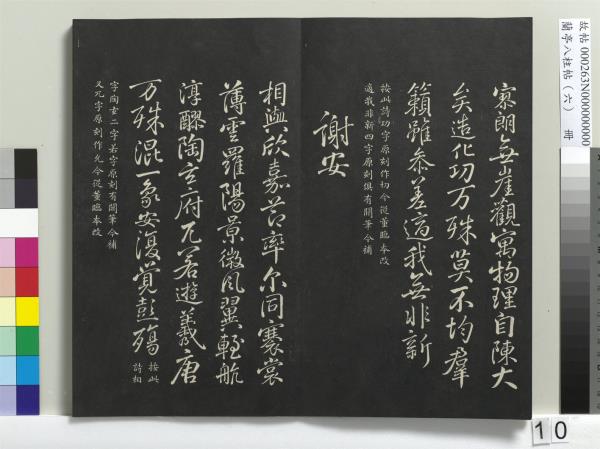 寥朗無崖觀寓物理自陳大
矣造化功万殊莫不均羣
籟雖參差適我無非新
按此詩功字原刻作切今從董臨本改
適我非新四字原刻俱有闕筆今補
謝安
相與欣嘉節率尒同褰裳
薄雲羅陽景微風翼輕航
淳醪陶玄府兀若遊羲唐
万殊混一象安復覺彭殤
按此
詩相
字陶玄二字若字原刻有闕筆今補
又兀字原刻作允今從董臨本改
故帖 000263N000000000
蘭亭八柱帖(六) 冊
10